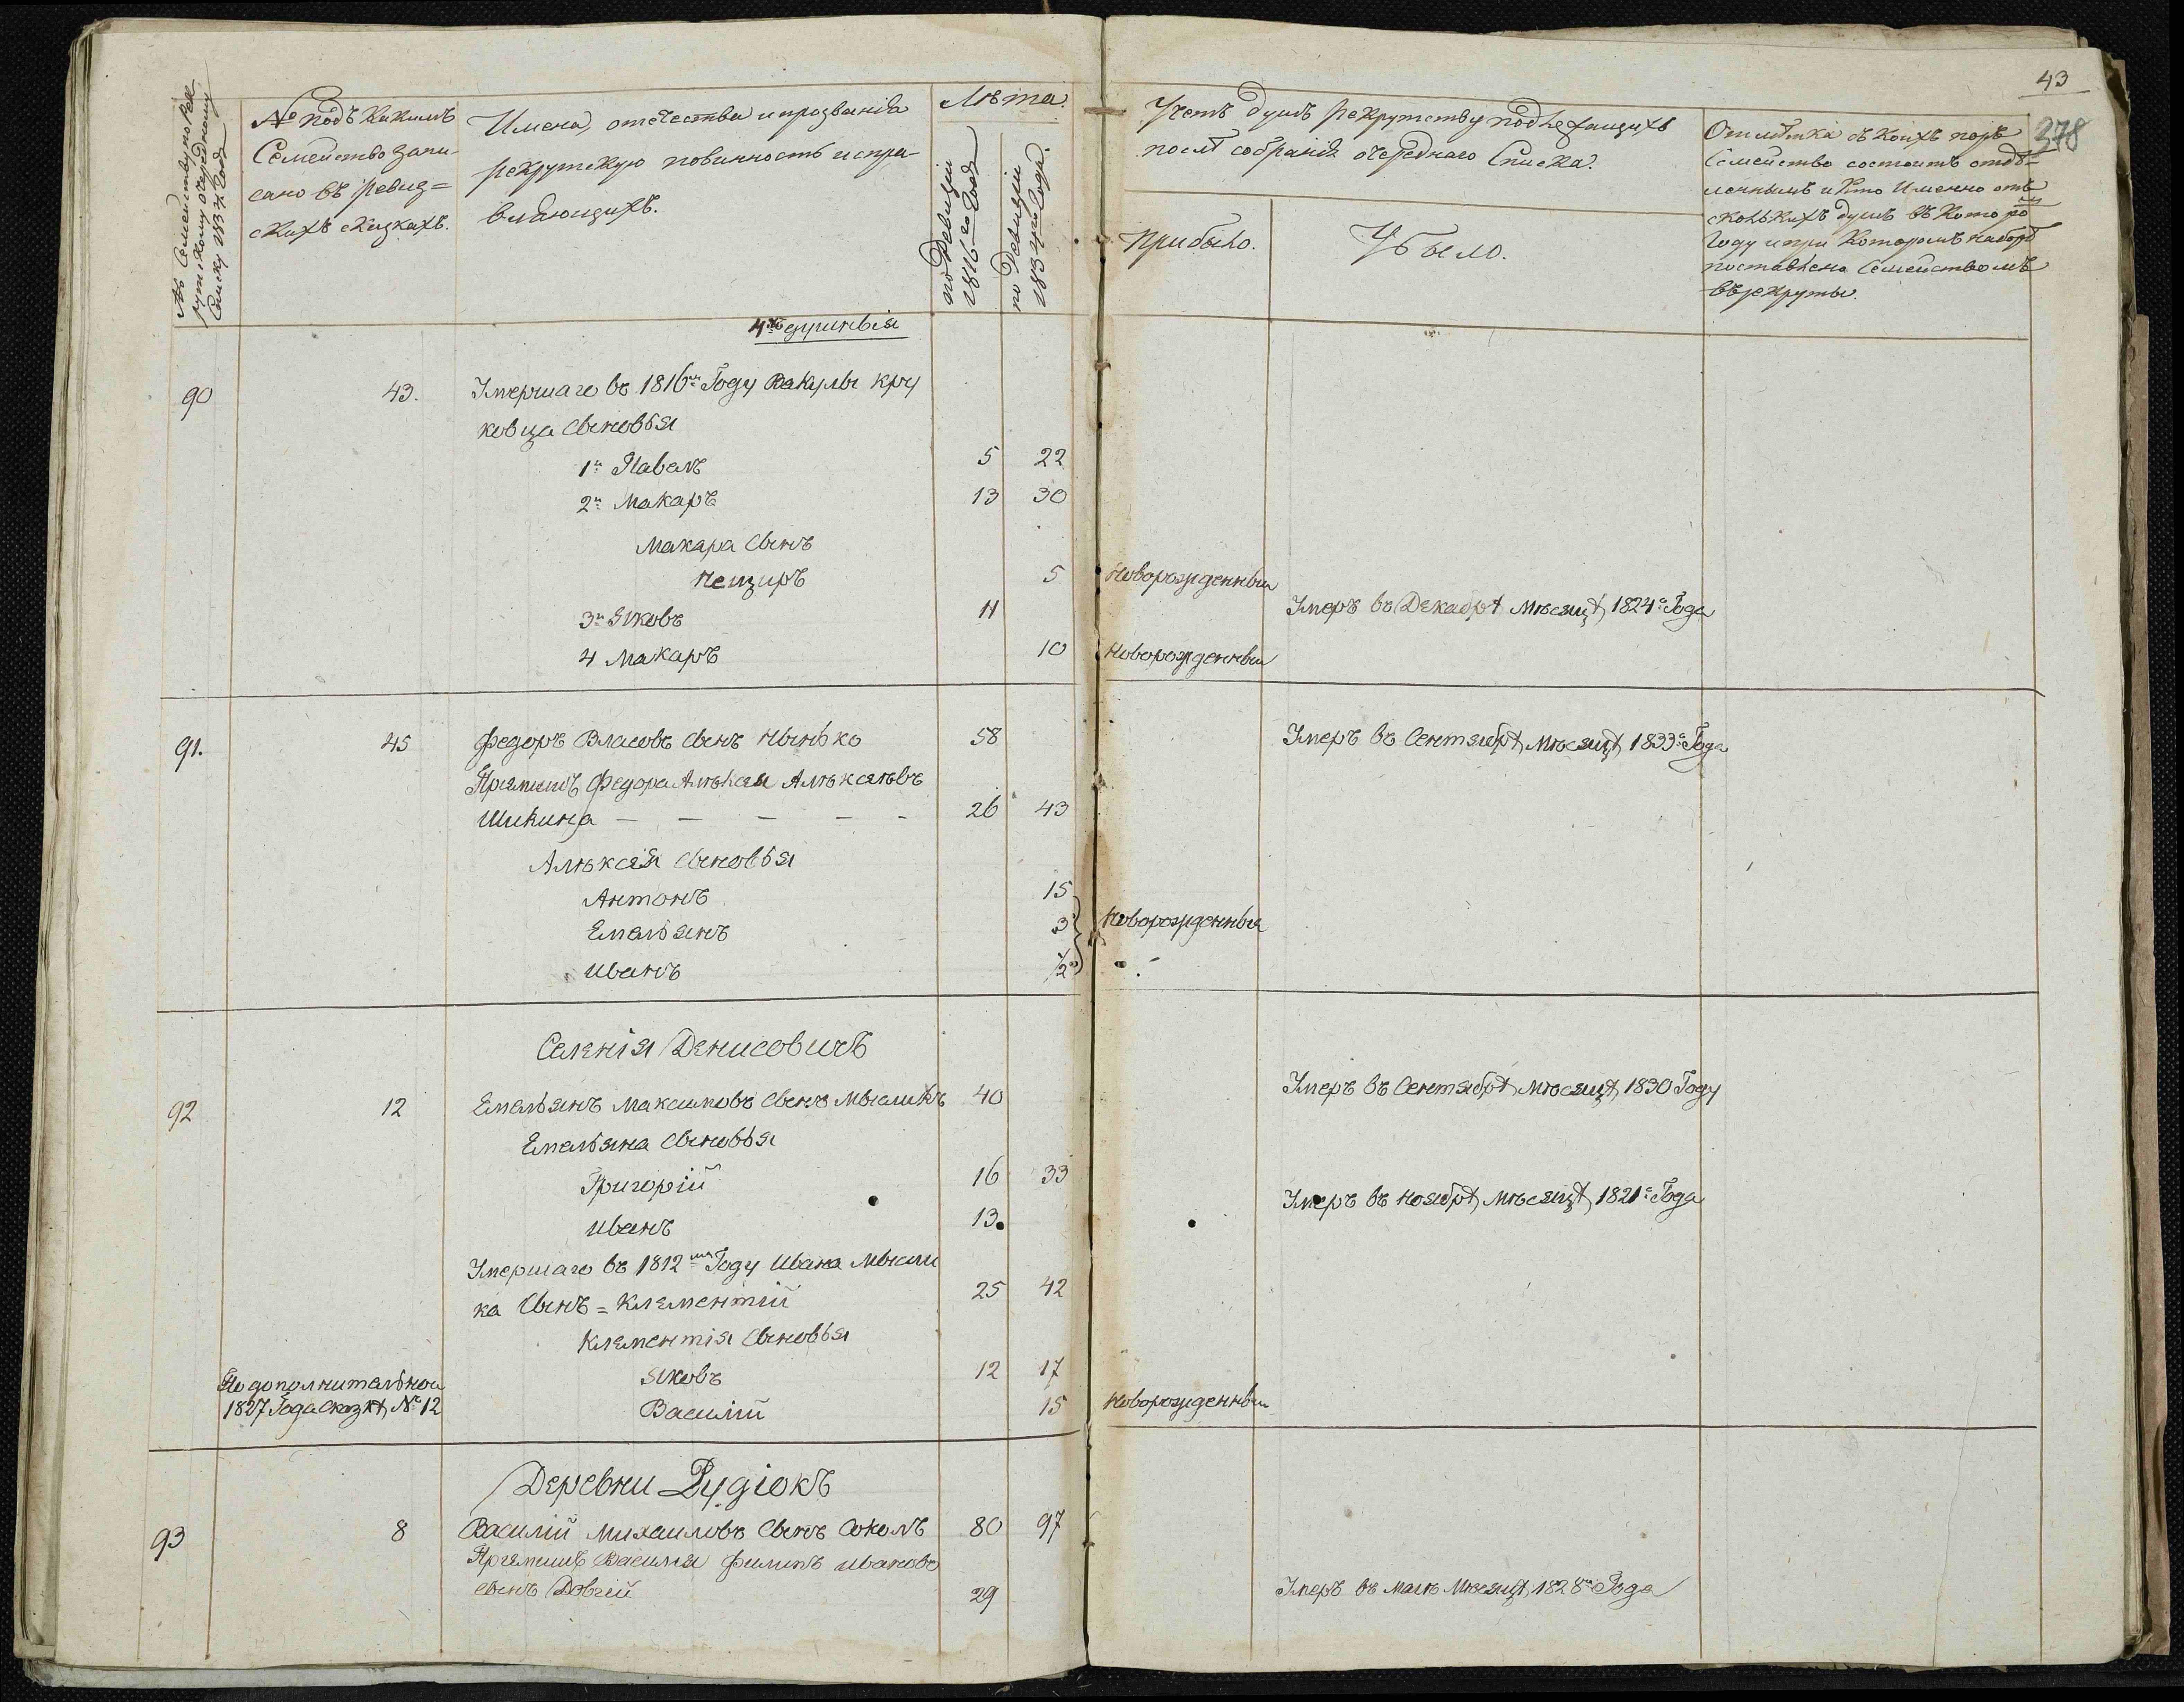 43
378
№ Семейству по рек
рутскому очередному
Списку 1834 года
№ подъ какимъ
Семейство запи-
сано въ ревиз=
скихъ сказкахъ.
Имена, отечества и прозванія
рекрутскую повинность испра-
вляющихъ.
Лѣта.
по Ревизіи
1816го Года
по Ревизіи
1834го Года.
Учетъ душъ рекрутству подлежащихъ
послѣ собранія очереднаго Списка.
Прибыло.
Убыло.
Отмѣтка съ коихъ поръ
Семейство состоитъ отдѣ-
леннымъ и кто Именно отъ
сколькихъ душъ въ которо
Году и при Которомъ наборѣ
поставлена Семействомъ
въ рекруты.
4хъ душныя
90 43. Умершаго въ 1816м Году Вакулы Кру
ковца Сыновья
1й Павелъ 5 22
2й Макаръ 13 30
Макара Сынъ
5 Новорожденный
3й Яковъ 11 Умеръ въ Декабрѣ Мѣсяцѣ 1824го Года
4 Макаръ 10 Новорожденный
91. 45 Федоръ Власовъ Сынъ 58 Умеръ въ Сентябрѣ Мѣсяцѣ 1833го Года
Пріемышъ Федора Алѣксѣя Алѣксѣевъ
Шикина — — — — - 26 43
Алѣксѣя Сыновья
Антонъ 15
Емельянъ 3 Новорожденныя
Иванъ 1/2
Селенія Денисовичъ
92 12 Емельянъ Максимовъ Сынъ Мысликъ 40 Умеръ въ Сентябрѣ Мѣсяцѣ 1830 Году
Емельяна Сыновья
Григорій 16 33
Иванъ 13. Умеръ въ Ноябрѣ Мѣсяцѣ 1821го Года
Умершаго въ 1812мъ Году Ивана Мысли
ка Сынъ = Клементій 25 42
Клементія Сыновья
Яковъ 12 17
По дополнительной
1827 Года Сказкѣ № 12 Василій 15 Новорожденный
Деревни Рудіокъ
93 8 Василій Михаиловъ Сынъ Соколъ 80 97
Пріемышъ Василія Филипъ Ивановъ
сынъ Довгій 29 Умеръ въ Маѣ Мѣсяцѣ 1828го Года